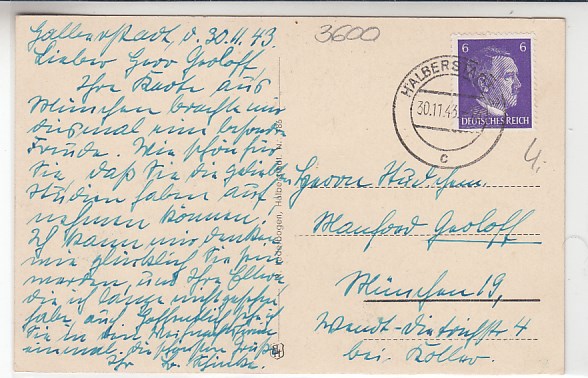 Halberstadt, d. 30.11.43.
Lieber Herr Groloff
Ihre Karte aus
München brachte mir
diesmal eine besondere
Freude. Wie schön für
Sie, daß Sie die geliebten
Studien haben auf
nehmen können.
Ich kann mir denken
wie glücklich Sie sein
werden, und Ihre Eltern
die ich lange nicht gesehen
habe auch. Hoffentlich
Sie in
einmal, die schönsten Grüße
Ihr Dr.
3600
HALBERSTADT
30.11.43
c
6 6
DEUTSCHES REICH
4.
Herrn Stud. chem.
Manfred Groloff
München 19,
Wendl-Dietrichstr 4
bei Koller.